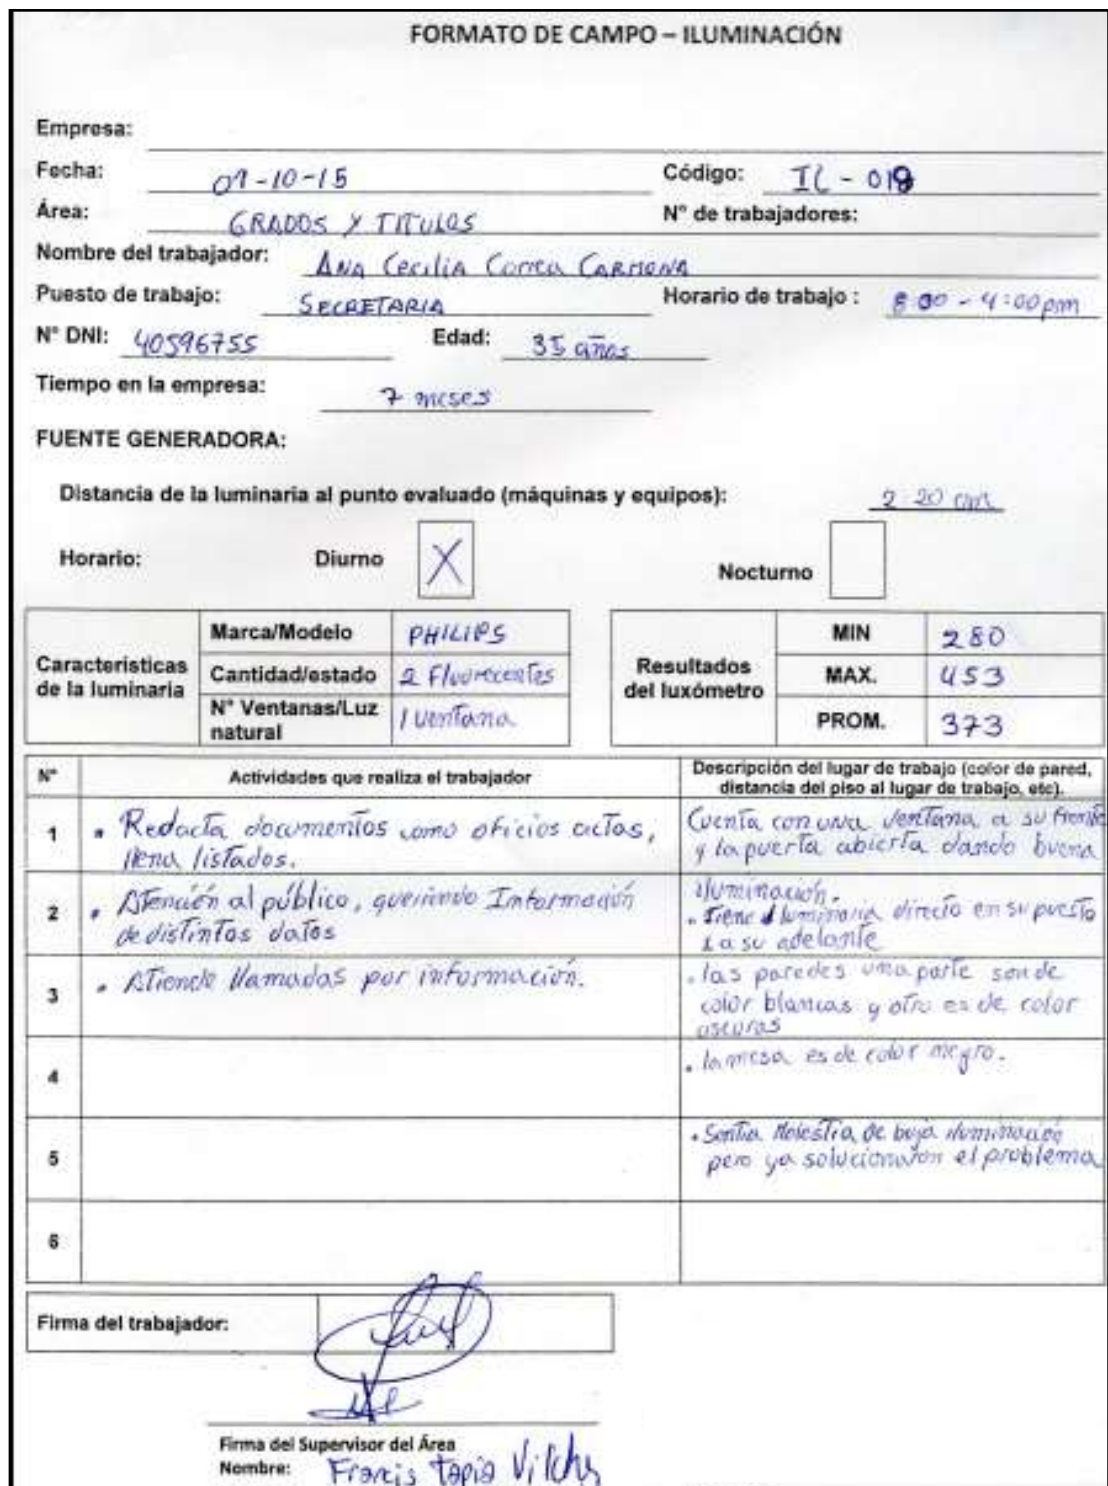 FORMATO DE CAMPO – ILUMINACIÓN
Empresa:
Fecha: 01-10-15 Código: IL - 019
Área: GRADOS Y TITULOS N° de trabajadores:
Nombre del trabajador: ANA Cecilia Correa CARMONA
Puesto de trabajo: SECRETARIA Horario de trabajo : 8:00 - 4:00 pm
N° DNI: 40596755 Edad: 35 años
Tiempo en la empresa: 7 meses
FUENTE GENERADORA:
Distancia de la luminaria al punto evaluado (máquinas y equipos): 2.20 cm
Horario: Diurno X Nocturno
Características de la luminaria
Marca/Modelo PHILIPS
Cantidad/estado 2 Fluorecentes
N° Ventanas/Luz natural 1 ventana
Resultados del luxómetro
MIN 280
MAX. 453
PROM. 373
N° Actividades que realiza el trabajador
Descripción del lugar de trabajo (color de pared,
distancia del piso al lugar de trabajo, etc).
1 • Redacta documentos como oficios actas,
llena listados.
Cuenta con una ventana a su frente
y la puerta abierta dando buena
2 • Atención al público, queriendo Información
de distintos datos
iluminación.
• Tiene luminaria directo en su puesto
a su adelante
3 • Atiende llamadas por información.
• las paredes una parte son de
color blancas y otro es de color
oscuras
4
• la mesa es de color negro.
5
• Sentía Molestia de baja iluminación
pero ya solucionaron el problema
6
Firma del trabajador:
Firma del Supervisor del Área
Nombre: Francis Tapia Vilchy